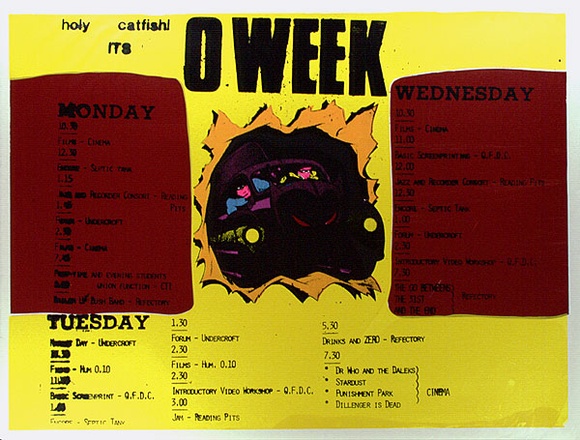 holy catfish!
ITS
O WEEK
MONDAY
10.30
Films - Cinema
12.30
- Septic Tank
1.15
Jazz and Recorder Consort - Reading
Pits
1.45
Forum - Undercroft
2.30
Films - Cinema
7.45
and evening students
union function -
Bush Band - Refectory
WEDNESDAY
10.30
Films - Cinema
11.00
Basic Screenprinting - Q.F.D.C.
12.00
Jazz and Recorder Consort - Reading Pits
12.30
Encore - Septic Tank
1.00
Forum - Undercroft
2.30
Introductory Video Workshop - Q.F.D.C.
7.30
The
The 31st
and the end
Refectory
TUESDAY
Day - Undercroft
10.30
Films - Hum 0.10
11.00
Basic Screenprint - Q.F.D.C.
1.00
Encore - Septic Tank
1.30
Forum - Undercroft
2.30
Films - Hum. 0.10
2.30
Introductory Video Workshop - Q.F.D.C.
3.00
Jam - Reading Pits
5.30
Drinks and ZERO - Refectory
7.30
* Dr Who and the Daleks
* Stardust
* Punishment Park
* Dillenger is Dead
CINEMA